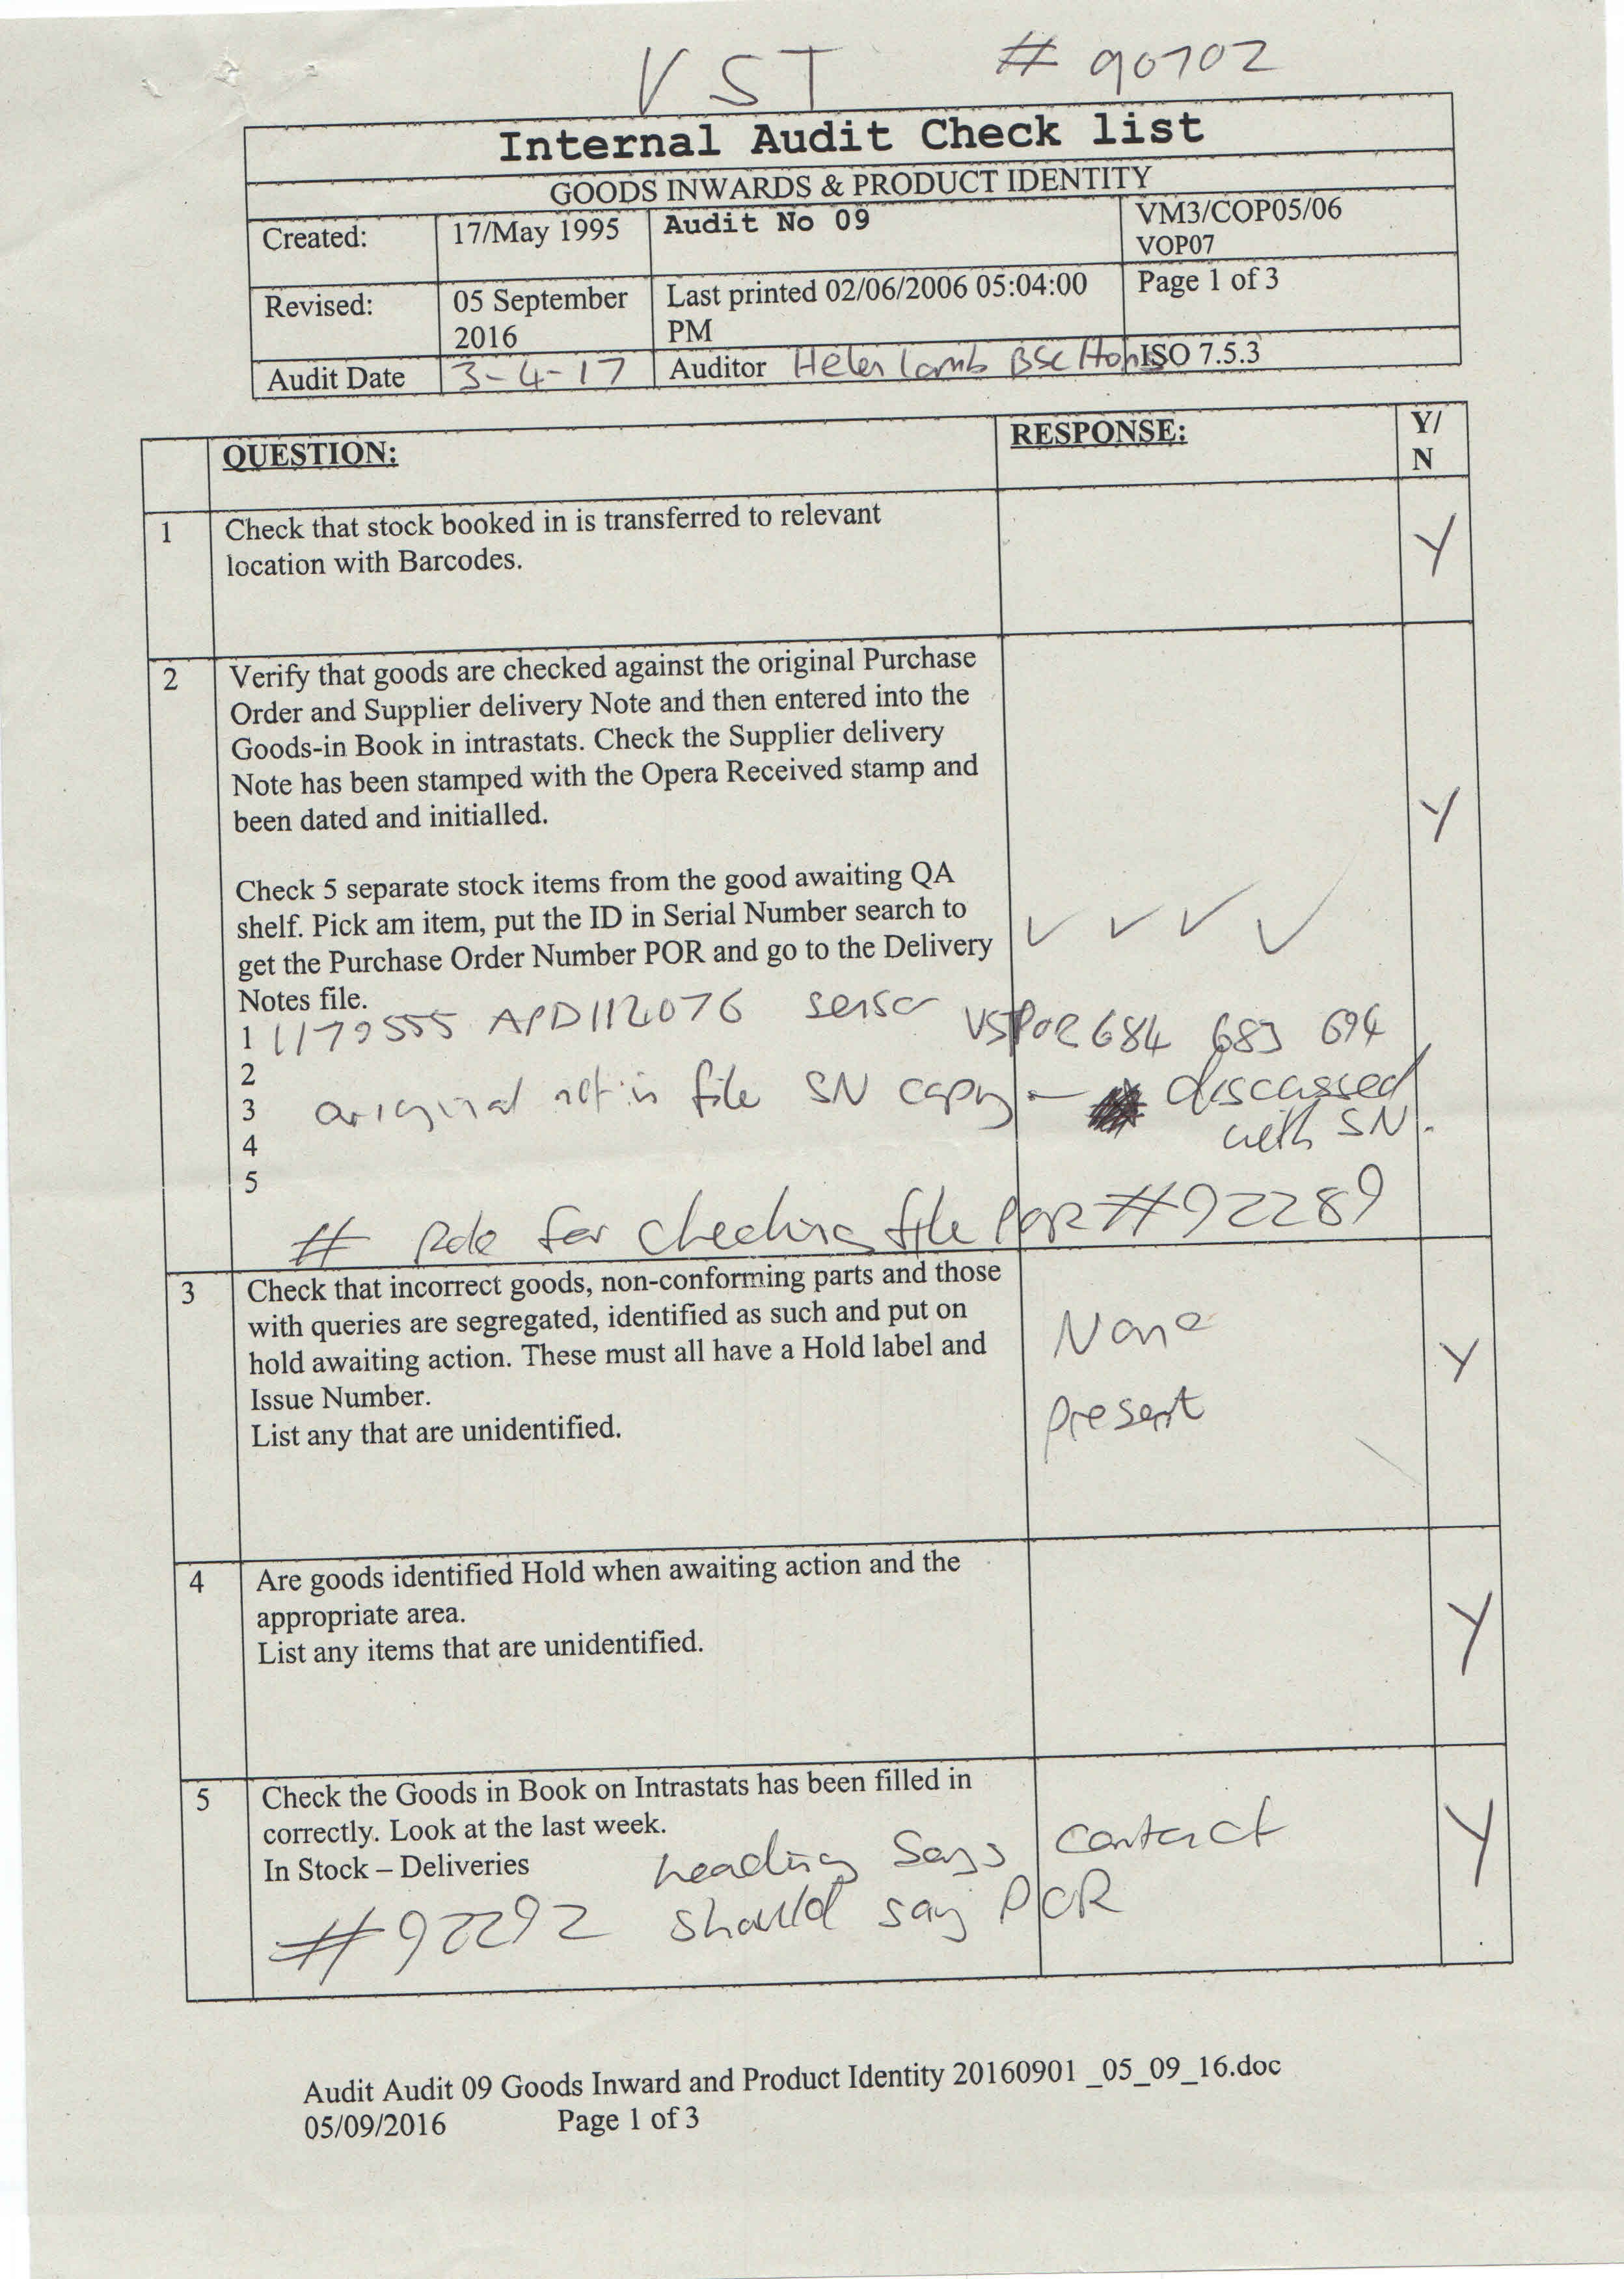 VST # 90702
Internal Audit Check list
GOODS INWARDS & PRODUCT IDENTITY
Created: 17/May 1995 Audit No 09 VM3/COP05/06
VOP07
Revised: 05 September 2016 Last printed 02/06/2006 05:04:00 PM Page 1 of 3
Audit Date 3-4-17 Auditor Helen Lamb BSc Hons ISO 7.5.3
QUESTION: RESPONSE: Y/N
1 Check that stock booked in is transferred to relevant
location with Barcodes.
Y
2 Verify that goods are checked against the original Purchase
Order and Supplier delivery Note and then entered into the
Goods-in Book in intrastats. Check the Supplier delivery
Note has been stamped with the Opera Received stamp and
been dated and initialled.
Y
Check 5 separate stock items from the good awaiting QA
shelf. Pick am item, put the ID in Serial Number search to
get the Purchase Order Number POR and go to the Delivery
Notes file.
✓ ✓ ✓ ✓
1 1179555 APD112076 sensor VSPOR684 683 694
2
3 original not in file SN copy - discussed
with SN.
4
5
# for checking file POR #92289
3 Check that incorrect goods, non-conforming parts and those
with queries are segregated, identified as such and put on
hold awaiting action. These must all have a Hold label and
Issue Number.
List any that are unidentified.
None
present
Y
4 Are goods identified Hold when awaiting action and the
appropriate area.
List any items that are unidentified.
Y
5 Check the Goods in Book on Intrastats has been filled in
correctly. Look at the last week.
In Stock – Deliveries
heading says contact
#92292 should say POR
Y
Audit Audit 09 Goods Inward and Product Identity 20160901 _05_09_16.doc
05/09/2016 Page 1 of 3